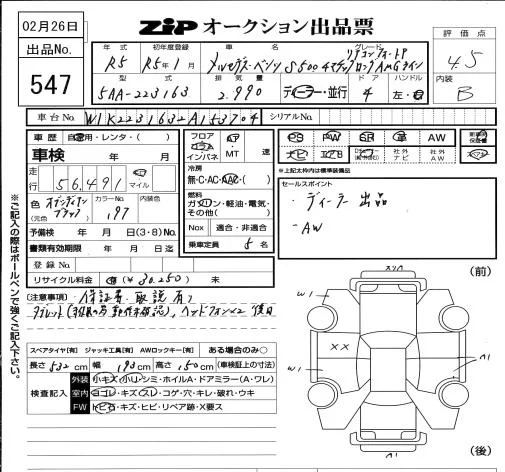 02月26日
ZIP オークション出品票
出品No.
547
評価点
4.5
内装
B
年式
R5
初年度登録
R5年1月
車名
メルセデス・ベンツ S500 4マチック
グレード
ロング AMGライン
型式
5AA-223163
排気量
2.990
ディーラー・並行
ドア
4
ハンドル
左・右
車台No.
W1K2231632A153704
シリアルNo.
車歴 自家用・レンタ・( )
車検 年 月
走行
56,491
マイル
色
オブシディアンブラック
(元色)
カラーNo.
197
内装色
予備検 年 月 日(3・8)No.
書類有効期限 年 月 日迄
登録No.
リサイクル料金 有(¥30.250) 未
フロア
コラム
インパネ
AT
MT 速
冷房
無・C・AC・AAC・( )
燃料
ガソリン・軽油・電気・
その他( )
Nox 適合・非適合
乗車定員 5名
PS PW SR 革 AW
ナビ エアB
社外ナビ
社外AW
新車時保証書
※上記太枠内は標準装備品
セールスポイント
・ディーラー出品
・AW
(注意事項) 保証書、取説有
※ご記入の際はボールペンで強くご記入下さい。
スペアタイヤ[有] ジャッキ工具[有] AWロックキー[有] ある場合のみ○
長さ 532cm 幅 193cm 高さ 150cm (車検証上の寸法)
検査記入
外装 小キズ・小凹・シミ・ホイルA・ドアミラー(A・ワレ)
室内 ヨゴレ・キズ・スレ・コゲ・穴・キレ・破れ・ウキ
FW トビ石・キズ・ヒビ・リペア跡・X要ス
(前)
W1
XX
W1
(後)